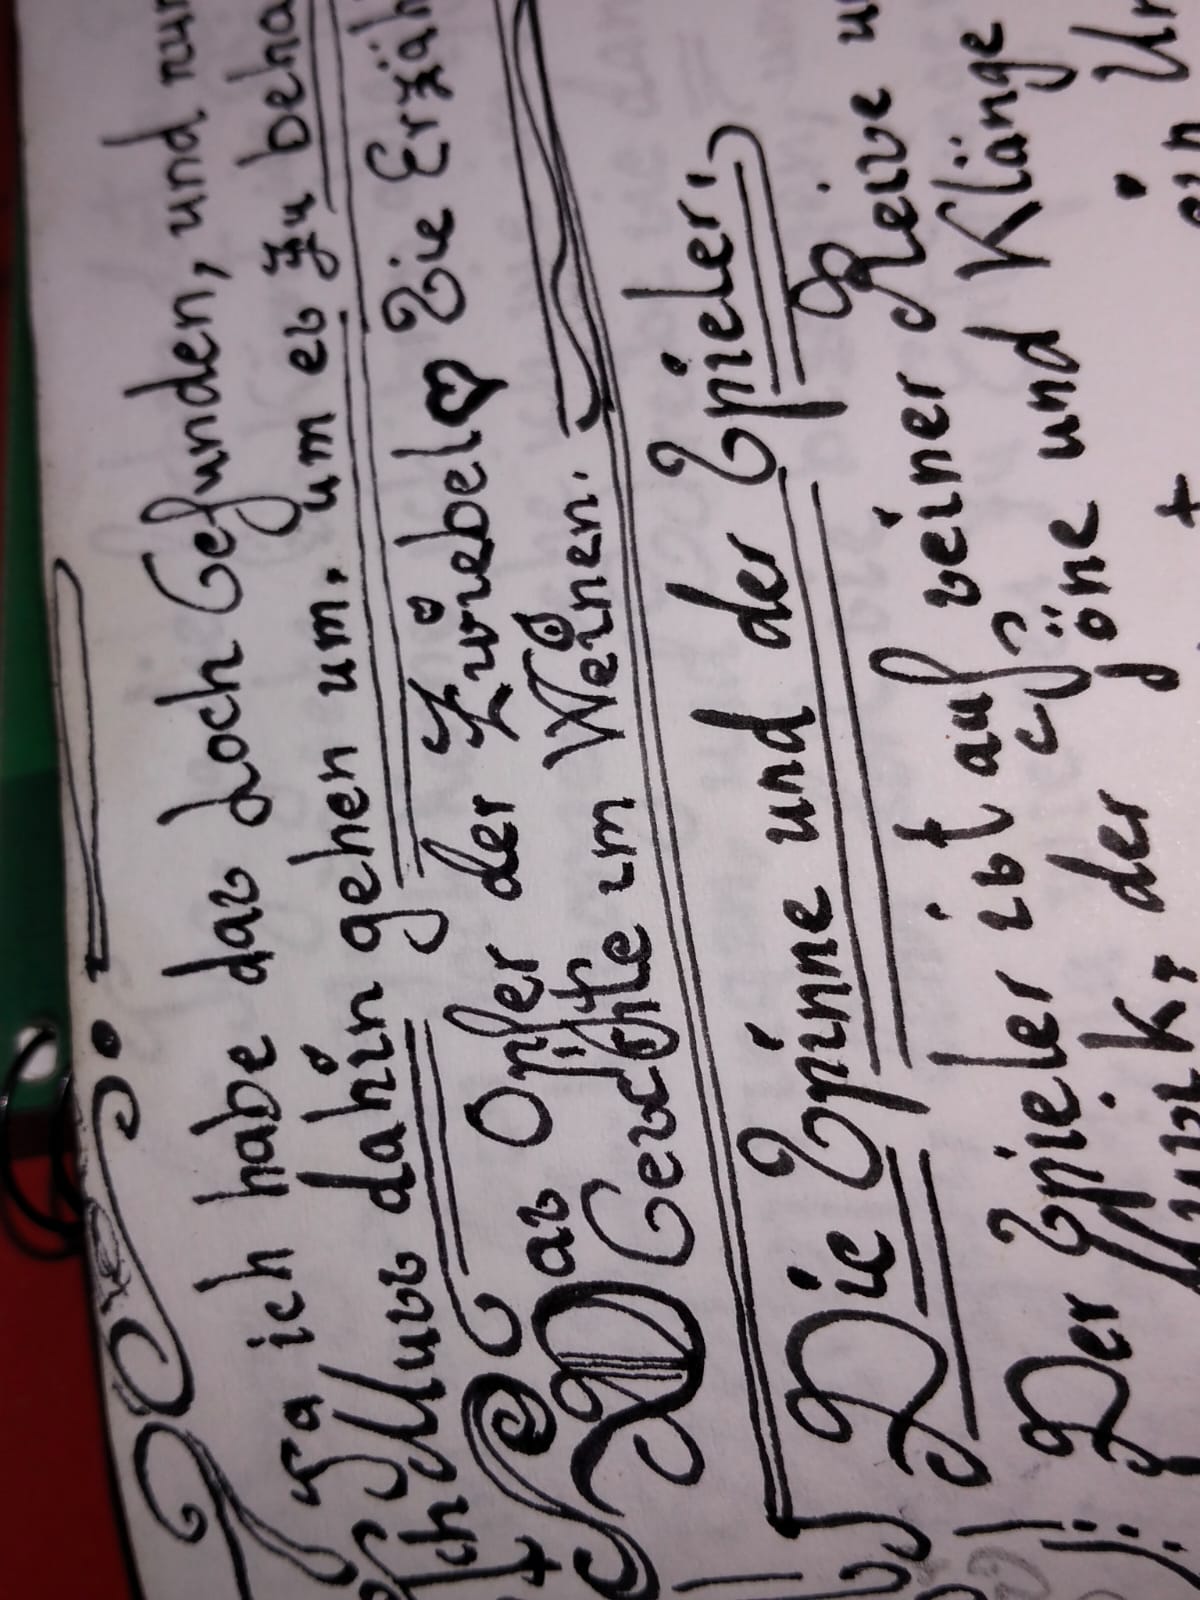 Ja ich habe das Loch Gefunden, und nun
Ich Muss dahin gehen um, um es zu beha
Das Opfer der Zwiebel Die Erzäh
Geschichte im Weinen.
Die Spinne und der Spieler,
Der Spieler ist auf seiner Reise u
Musik, der Töne und Klänge